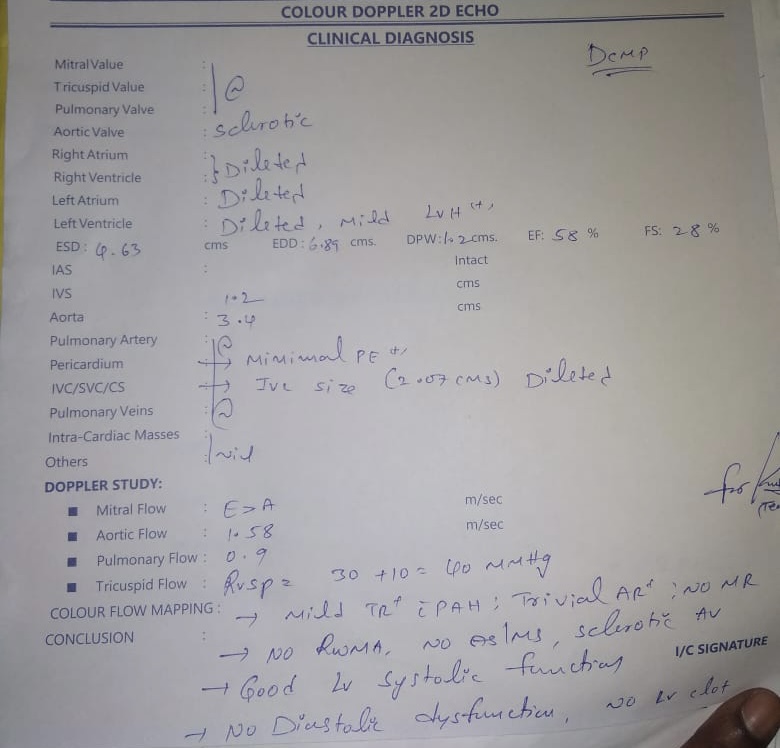 COLOUR DOPPLER 2D ECHO
CLINICAL DIAGNOSIS
DCMP
Mitral Value :
Tricuspid Value : N
Pulmonary Valve :
Aortic Valve : Sclerotic
Right Atrium :
Right Ventricle : } Dileted
Left Atrium : Dileted
Left Ventricle : Dileted, Mild LVH (+),
ESD : 4.63 cms EDD : 6.89 cms. DPW : 1.2 cms. EF: 58 % FS: 28 %
IAS : Intact
IVS 1.2 cms
Aorta : 3.4 cms
Pulmonary Artery : N
Pericardium → Minimal PE +,
IVC/SVC/CS → IVC size (2.07 cms) Dileted
Pulmonary Veins : N
Intra-Cardiac Masses :
Others : Nil
DOPPLER STUDY:
■ Mitral Flow : E > A m/sec
■ Aortic Flow : 1.58 m/sec
■ Pulmonary Flow : 0.9
■ Tricuspid Flow : RVSP = 30 + 10 = 40 mmHg
COLOUR FLOW MAPPING : → Mild TR+ c̄ PAH ; Trivial AR+ ; NO MR
CONCLUSION : → NO RWMA, NO AS/MS, sclerotic AV
→ Good LV systolic function
→ No Diastolic dysfunction, NO LV clot
I/C SIGNATURE
for